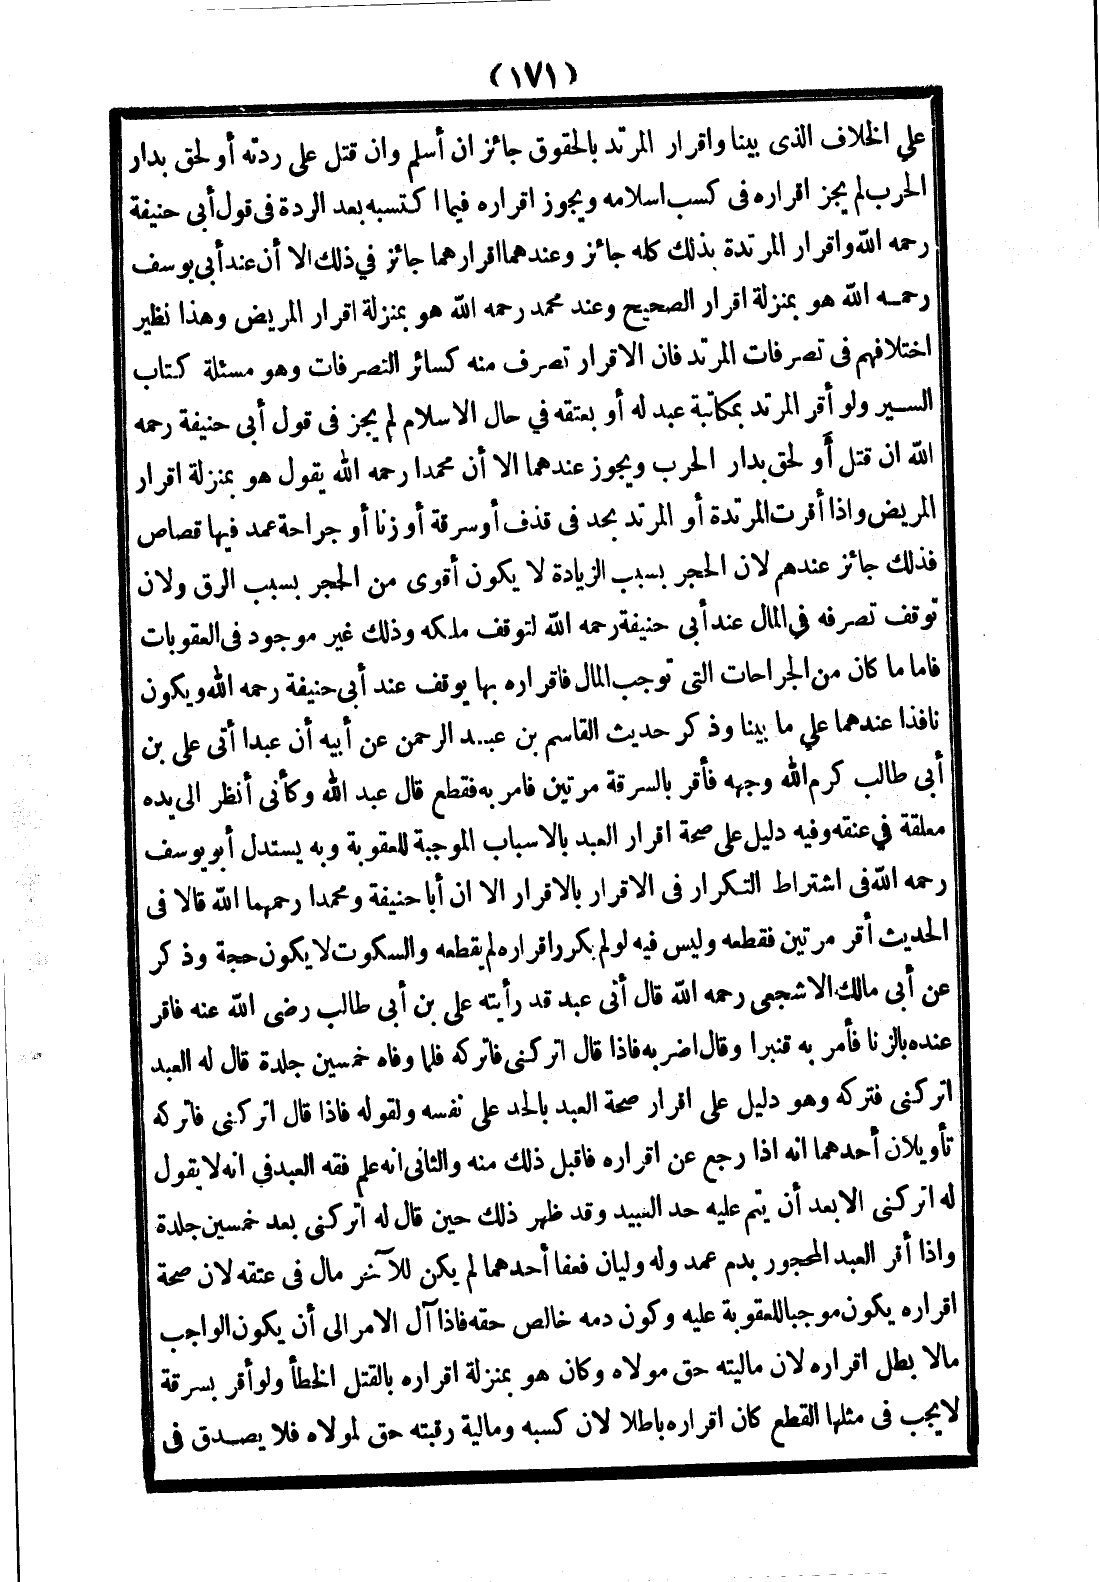 (١٧١)
على الخلاف الذى بينا واقرار المرتد بالحقوق جائز ان أسلم وان قتل على ردته أو لحق بدار
الحرب لم يجز اقراره فى كسب اسلامه ويجوز اقراره فيما اكتسبه بعد الردة فى قول أبى حنيفة
رحمه الله واقرار المرتدة بذلك كله جائز وعندهما اقرارهما جائز في ذلك الا أن عند أبى يوسف
رحمه الله هو بمنزلة اقرار الصحيح وعند محمد رحمه الله هو بمنزلة اقرار المريض وهذا نظير
اختلافهم فى تصرفات المرتد فان الاقرار تصرف منه كسائر التصرفات وهو مسئلة كتاب
السير ولو أقر المرتد بمكاتبة عبد له أو بعتقه في حال الاسلام لم يجز فى قول أبى حنيفة رحمه
الله ان قتل أو لحق بدار الحرب ويجوز عندهما الا أن محمدا رحمه الله يقول هو بمنزلة اقرار
المريض واذا أقرت المرتدة أو المرتد بحد فى قذف أو سرقة أو زنا أو جراحة عمد فيها قصاص
فذلك جائز عندهم لان الحجر بسبب الزيادة لا يكون أقوى من الحجر بسبب الرق ولان
توقف تصرفه في المال عند أبى حنيفة رحمه الله لتوقف ملكه وذلك غير موجود فى العقوبات
فاما ما كان من الجراحات التى توجب المال فاقراره بها يوقف عند أبى حنيفة رحمه الله ويكون
نافذا عندهما علي ما بينا وذكر حديث القاسم بن عبد الرحمن عن أبيه أن عبدا أتى على بن
أبى طالب كرم الله وجهه فأقر بالسرقة مرتين فامر به فقطع قال عبد الله وكأنى أنظر الى يده
معلقة في عنقه وفيه دليل على صحة اقرار العبد بالاسباب الموجبة للعقوبة وبه يستدل أبو يوسف
رحمه الله فى اشتراط التكرار فى الاقرار بالاقرار الا ان أبا حنيفة ومحمدا رحمهما الله قالا فى
الحديث أقر مرتين فقطعه وليس فيه لو لم يكرر اقراره لم يقطعه والسكوت لا يكون حجة وذكر
عن أبى مالك الاشجعى رحمه الله قال أنى عبد قد رأيته على بن أبى طالب رضى الله عنه فاقر
عنده بالزنا فأمر به قنبرا وقال اضربه فاذا قال اتركنى فاتركه فلما وفاه خمسين جلدة قال له العبد
اتركنى فتركه وهو دليل على اقرار صحة العبد بالحد على نفسه ولقوله فاذا قال اتركنى فاتركه
تأويلان أحدهما انه اذا رجع عن اقراره فاقبل ذلك منه والثانى انه علم فقه العبد في انه لا يقول
له اتركنى الا بعد أن يتم عليه حد العبيد وقد ظهر ذلك حين قال له اتركنى بعد خمسين جلدة
واذا أقر العبد المحجور بدم عمد وله وليان فعفا أحدهما لم يكن للآخر مال فى عتقه لان صحة
اقراره يكون موجبا للعقوبة عليه وكون دمه خالص حقه فاذا آل الامر الى أن يكون الواجب
مالا بطل اقراره لان ماليته حق مولاه وكان هو بمنزلة اقراره بالقتل الخطأ ولو أقر بسرقة
لا يجب فى مثلها القطع كان اقراره باطلا لان كسبه ومالية رقبته حق لمولاه فلا يصدق فى